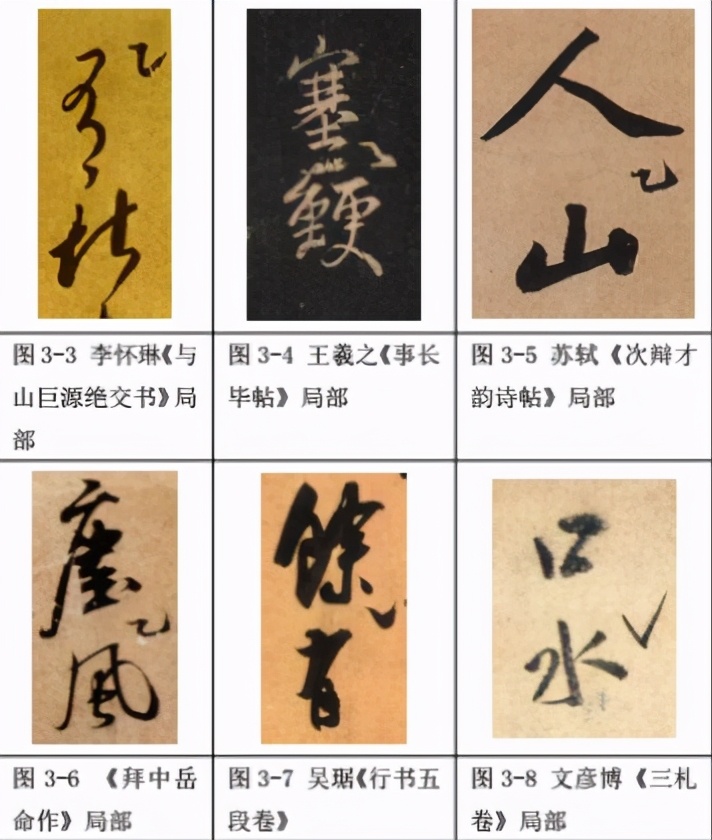 人
山
图 3-3 李怀琳《与
山巨源绝交书》局
部
图 3-4 王羲之《事长
毕帖》局部
图 3-5 苏轼《次辩才
韵诗帖》局部
塵
風
餘
口
水
图 3-6 《拜中岳
命作》局部
图 3-7 吴琚《行书五
段卷》
图 3-8 文彦博《三札
卷》局部